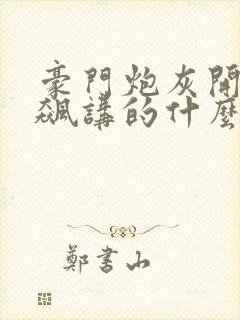 豪門炮灰開
飆講的什麼
鄭書山